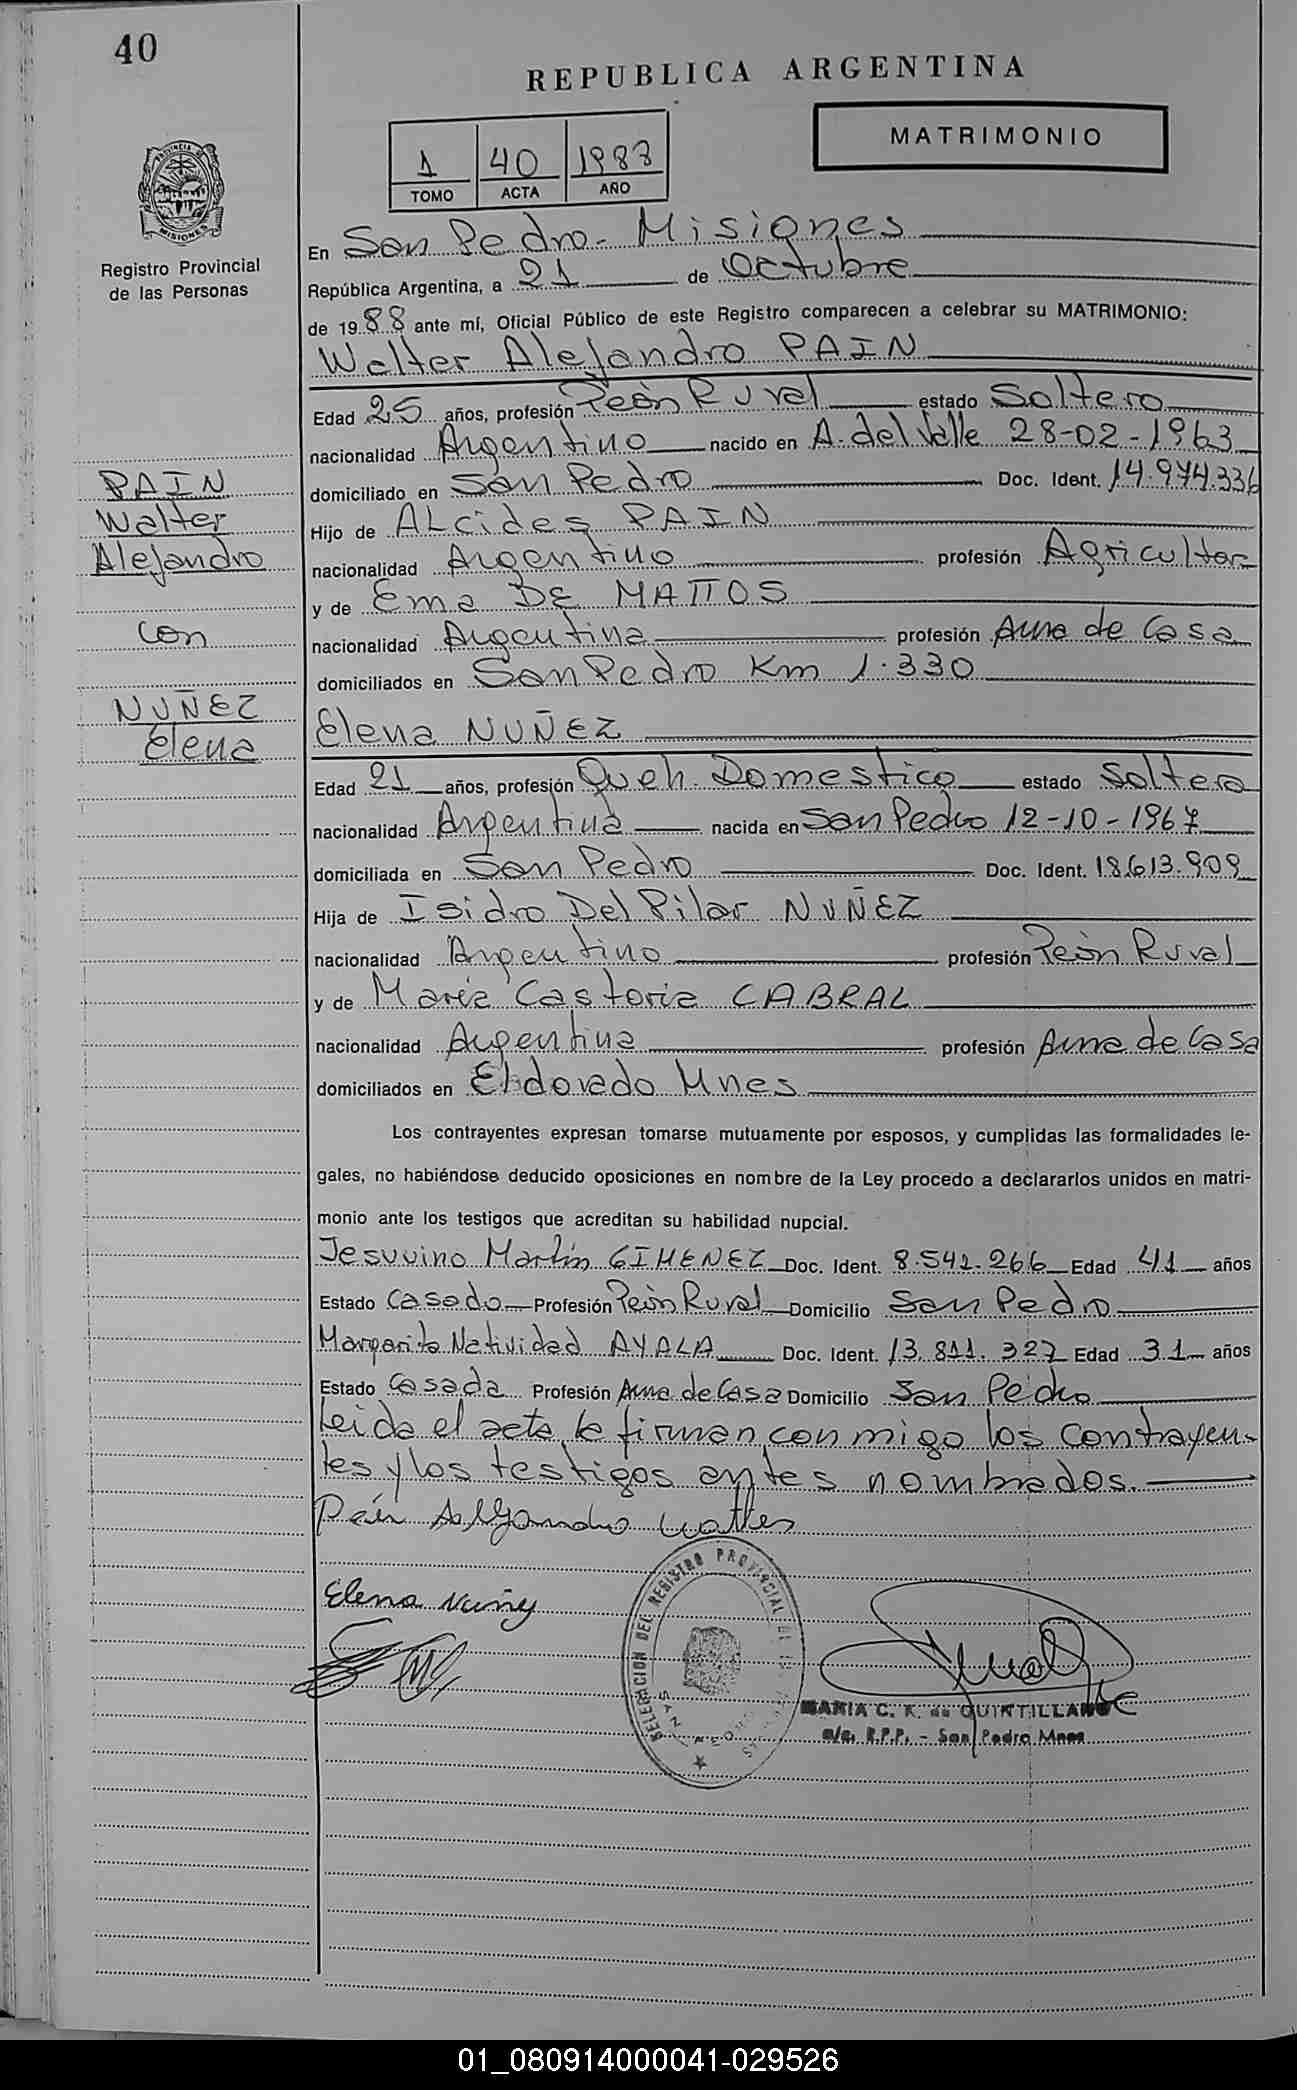 40
REPUBLICA ARGENTINA
MATRIMONIO
1 40 1988
TOMO ACTA AÑO
Registro Provincial
de las Personas
En San Pedro - Misiones
República Argentina, a 21 de Octubre
de 1988 ante mí, Oficial Público de este Registro comparecen a celebrar su MATRIMONIO:
Walter Alejandro PAIN
Edad 25 años, profesión Peón Rural estado Soltero
nacionalidad Argentino nacido en A. del Valle 28-02-1963
domiciliado en San Pedro Doc. Ident. 14.974.336
Hijo de ALcides PAIN
nacionalidad Argentino profesión Agricultor
y de Ema DE MATTOS
nacionalidad Argentina profesión Ama de Casa
domiciliados en San Pedro Km 1.330
PAIN
Walter
Alejandro
con
NUÑEZ
Elena
Elena NUÑEZ
Edad 21 años, profesión Queh. Domestico estado Soltera
nacionalidad Argentina nacida en San Pedro 12-10-1967
domiciliada en San Pedro Doc. Ident. 18.613.909
Hija de Isidro Del Pilar NUÑEZ
nacionalidad Argentino profesión Peón Rural
y de María Castoria CABRAL
nacionalidad Argentina profesión Ama de Casa
domiciliados en Eldorado Mnes
Los contrayentes expresan tomarse mutuamente por esposos, y cumplidas las formalidades le-
gales, no habiéndose deducido oposiciones en nombre de la Ley procedo a declararlos unidos en matri-
monio ante los testigos que acreditan su habilidad nupcial.
Jesuvino Martín GIMENEZ Doc. Ident. 8.541.266 Edad 41 años
Estado Casado Profesión Peón Rural Domicilio San Pedro
Margarita Natividad AYALA Doc. Ident. 13.811.327 Edad 31 años
Estado Casada Profesión Ama de Casa Domicilio San Pedro
Leida el acta la firman conmigo los contrayen-
tes y los testigos antes nombrados.
Pain Alejandro Walter
Elena Nuñez
DELEGACION DEL REGISTRO PROVINCIAL DE LAS PERSONAS
MARIA C. K. de QUINTILLAN
a/c. R.P.P. - San Pedro Mnes
01_080914000041-029526